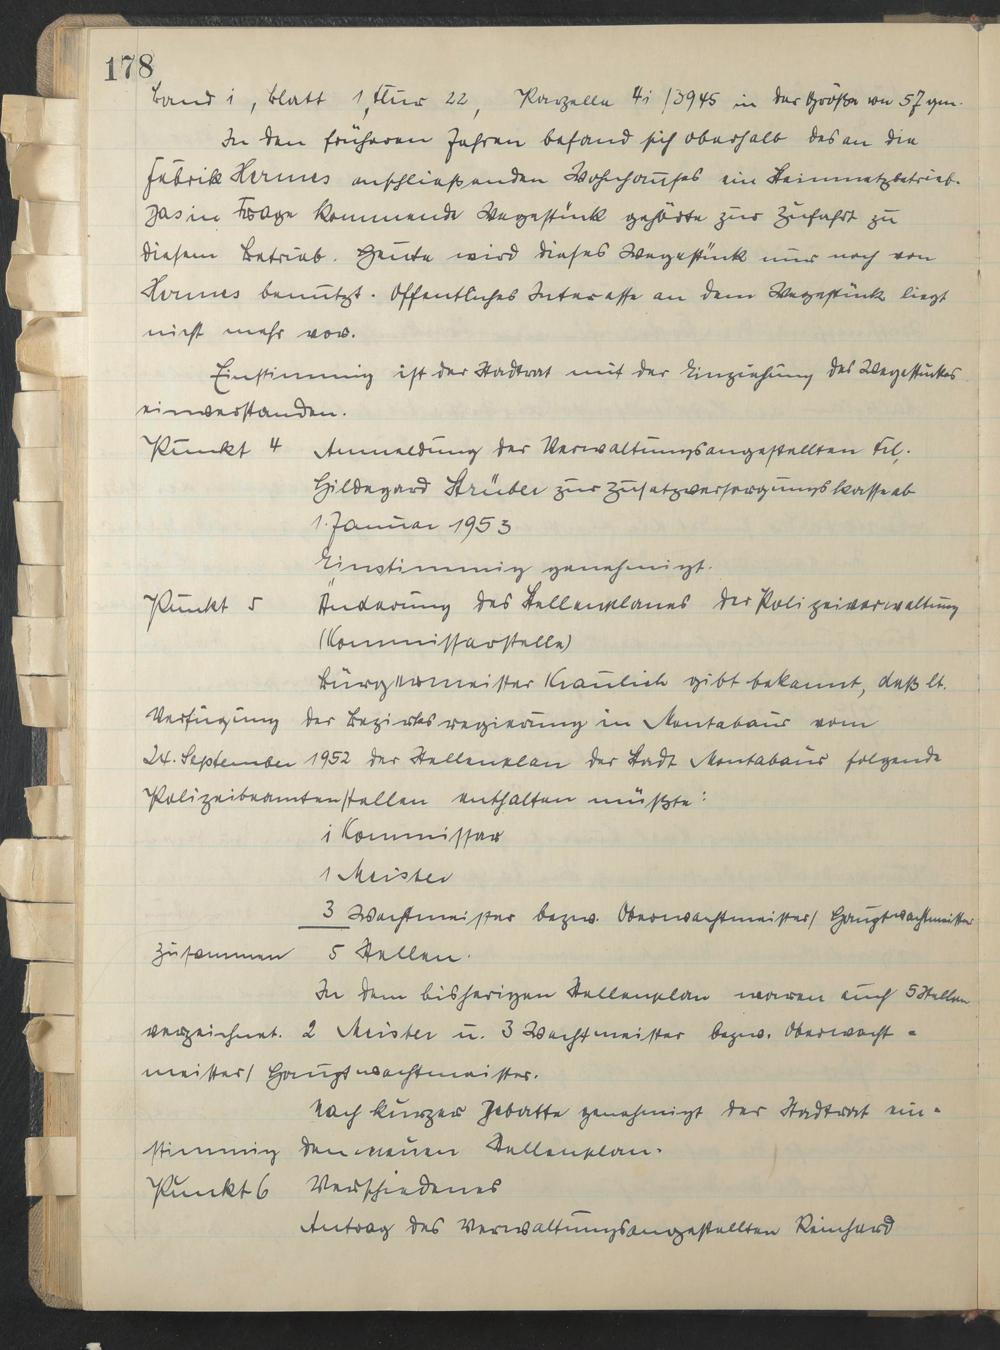 178
Band 1, Blatt 1, Flur 22, Parzelle 41/3945 in der Größe von 57 qm.
In den früheren Jahren befand sich oberhalb des an die
Fabrik Hermes anschließenden Wohnhauses ein Steinmetzbetrieb.
Das in Frage kommende Wegestück gehörte zur Zufahrt zu
diesem Betrieb. Heute wird dieses Wegestück nur noch von
Hermes benutzt. Öffentliches Interesse an dem Wegestück liegt
nicht mehr vor.
Einstimmig ist der Stadtrat mit der Einziehung des Wegestückes
einverstanden.
Punkt 4 Anmeldung der Verwaltungsangestellten Frl.
Hildegard Strüber zur Zusatzversorgungskasse ab
1. Januar 1953
Einstimmig genehmigt.
Punkt 5 Änderung des Stellenplanes der Polizeiverwaltung
(Kommissarstelle)
Bürgermeister Kraulich gibt bekannt, daß lt.
Verfügung der Bezirksregierung in Montabaur vom
24. September 1952 der Stellenplan der Stadt Montabaur folgende
Polizeibeamtenstellen enthalten müßte:
1 Kommissar
1 Meister
3 Wachtmeister bezw. Oberwachtmeister/Hauptwachtmeister
zusammen 5 Stellen.
In dem bisherigen Stellenplan waren auch 5 Stellen
verzeichnet. 2 Meister u. 3 Wachtmeister bezw. Oberwacht=
meister/Hauptwachtmeister.
Nach kurzer Debatte genehmigt der Stadtrat ein=
stimmig den neuen Stellenplan.
Punkt 6 Verschiedenes
Antrag des Verwaltungsangestellten Reinhard